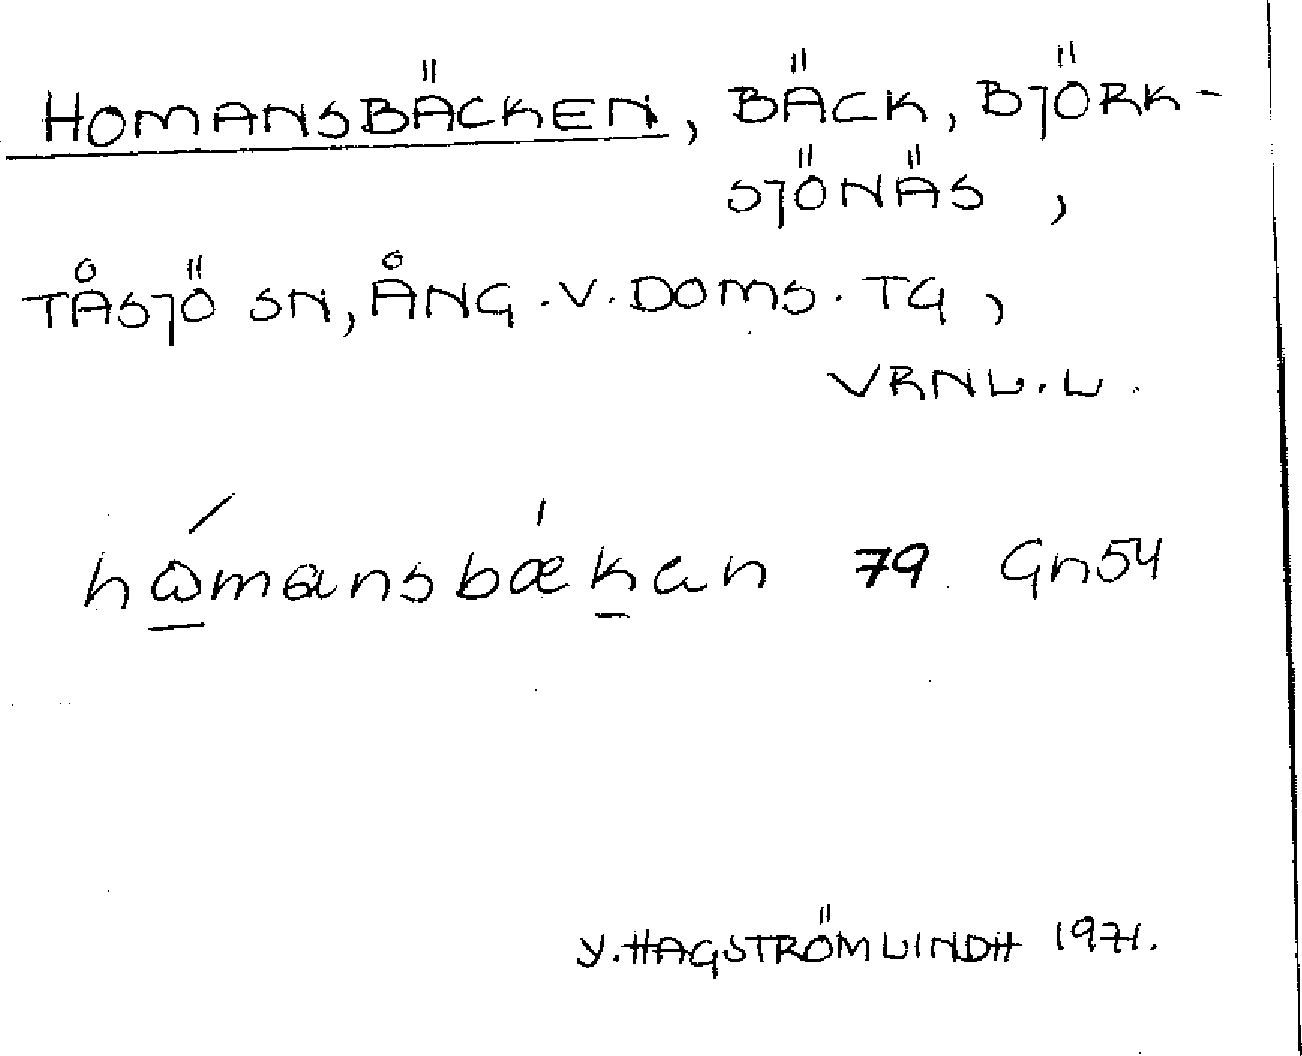 HOMANSBÄCKEN, BÄCK, BJÖRK-
SJÖNÄS,
TÅSJÖ SN, ÅNG.V.DOMS.TG,
VRNL.L.
79. Gn54
Y.HAGSTRÖM LINDH 1971.